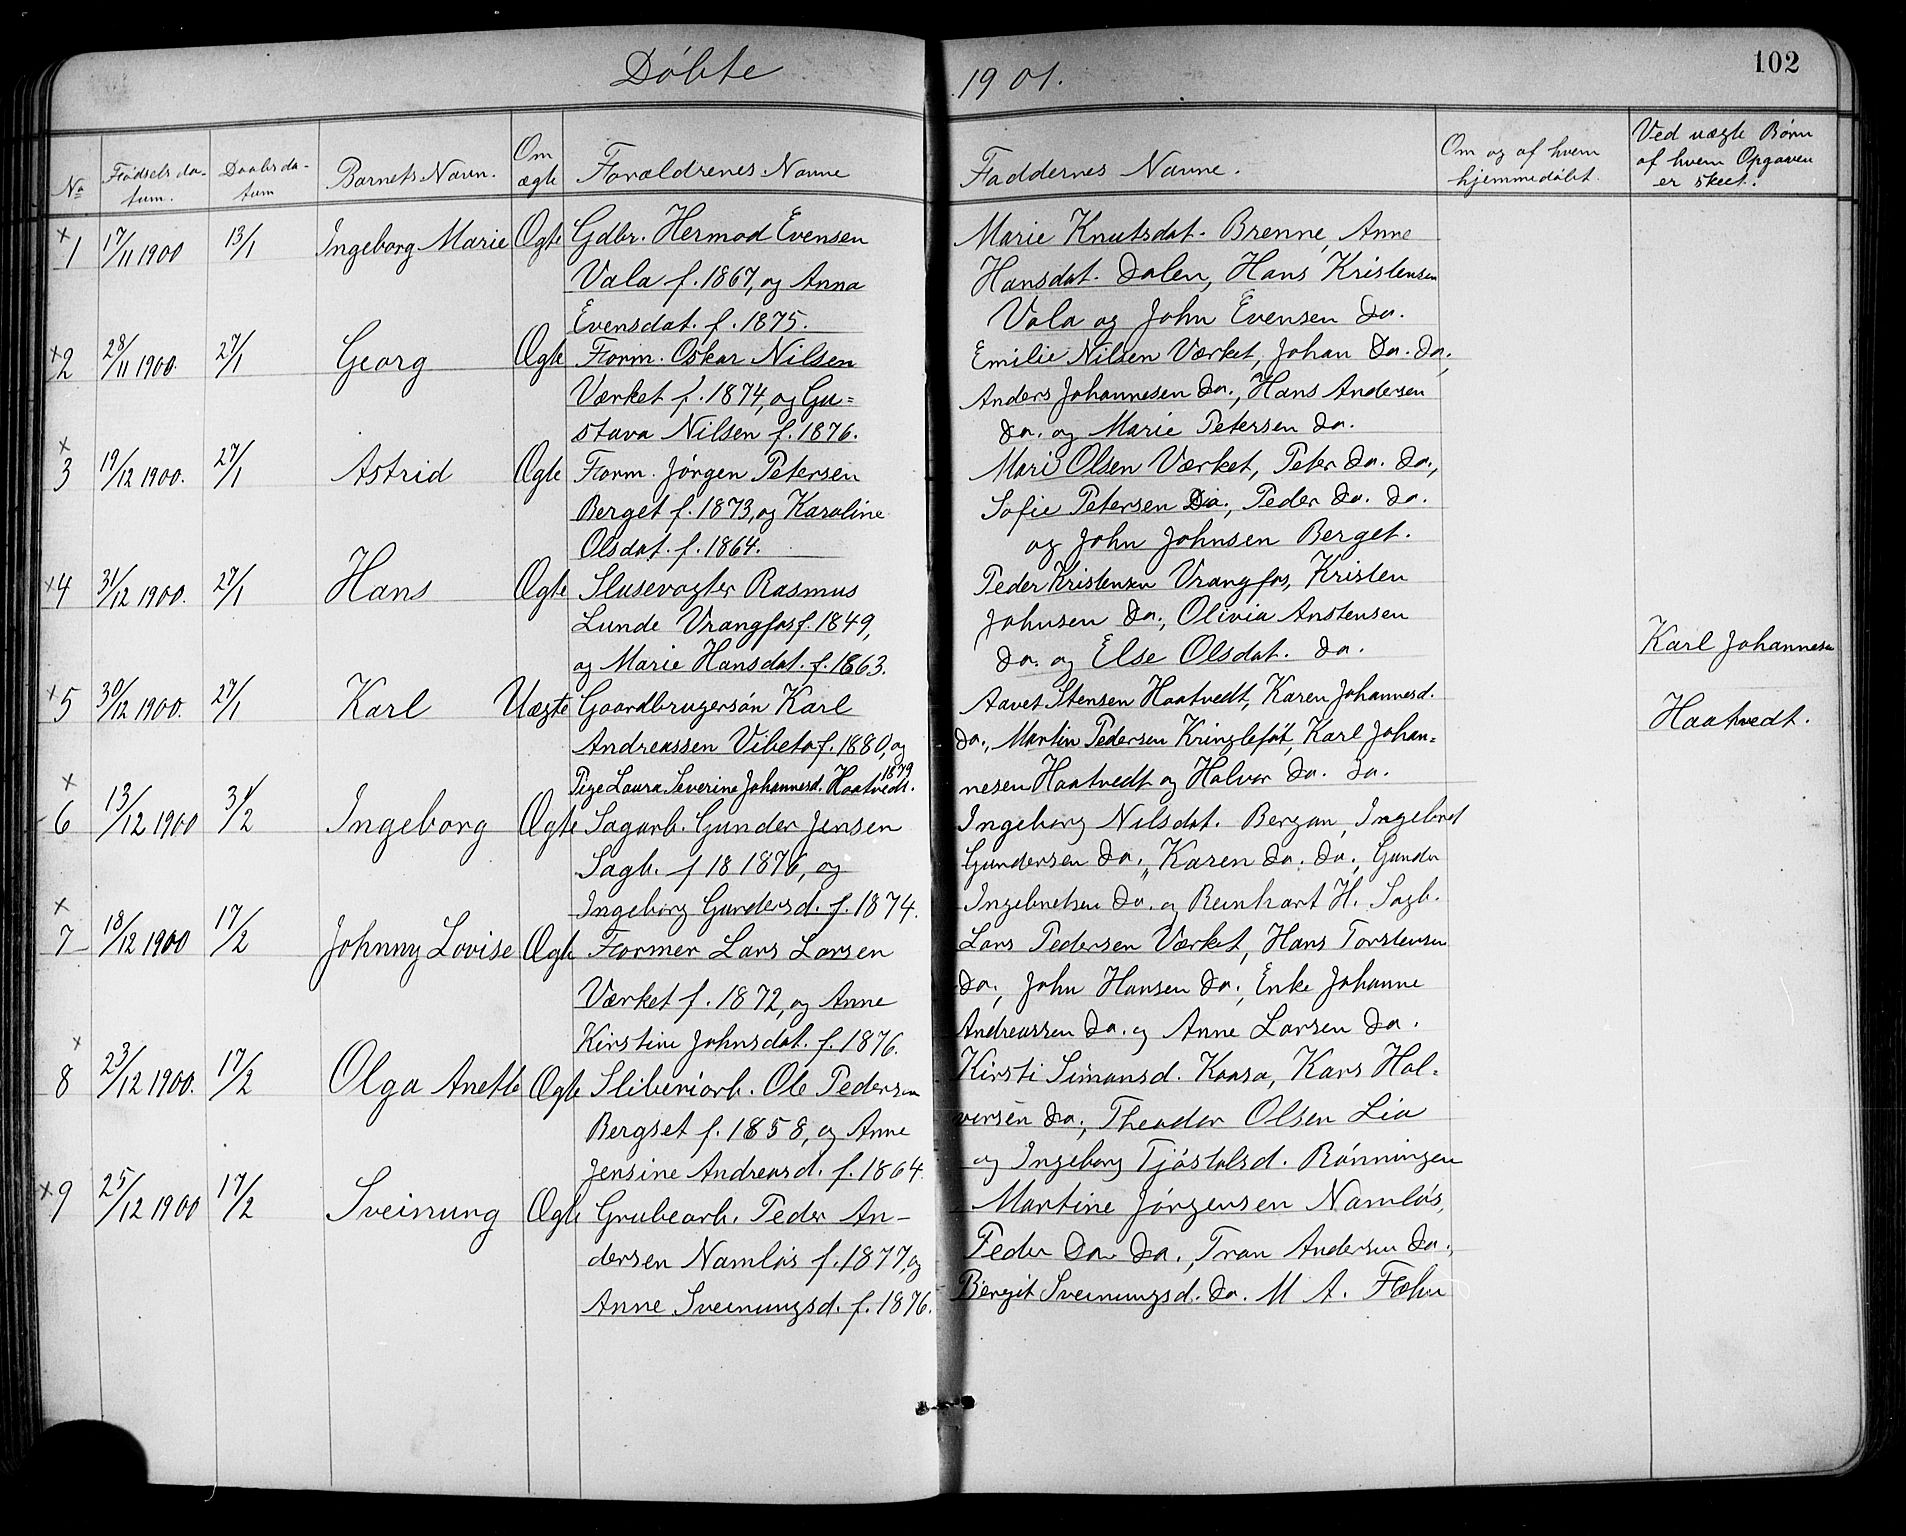 Døbte 1901.
102
No
Fødselsda-
tum.
Daabsda-
tum
Barnets Navn.
Om
ægte
Forældrenes Navne
Faddernes Navne.
Om og af hvem
hjemmedøbt.
Ved uægte Børn
af hvem Opgaven
er skeet.
x 1 17/11 1900 13/1 Ingeborg Marie Ægte Gdbr. Hermod Evensen
Vala f. 1867, og Anna
Evensdat. f. 1875.
Marie Knutsdat. Brenne, Anne
Hansdat. Dalen, Hans Kristensen
Vala og John Evensen Do.
x 2 28/11 1900. 27/1 Georg Ægte Form. Oskar Nilsen
Værket f. 1874, og Gu=
stava Nilsen f. 1876.
Emilie Nilsen Værket, Johan Do. Do.,
Anders Johannesen Do., Hans Andersen
Do. og Marie Petersen Do.
x 3 19/12 1900. 27/1 Astrid Ægte Form. Jørgen Petersen
Berget f. 1873, og Karoline
Olsdat. f. 1864.
Mari Olsen Værket, Peter Do. Do.,
Sofie Petersen Do., Peder Do. Do.
og John Johnsen Berget.
x 4 31/12 1900. 27/1 Hans Ægte Slusevogter Rasmus
Lunde Vrangfos f. 1849,
og Marie Hansdat. f. 1863.
Peder Kristensen Vrangfos, Kristen
Johnsen Do., Olivia Anstensen
Do. og Else Olsdat. Do.
x 5 30/12 1900. 27/1 Karl Uægte Gaardbrugersøn Karl
Andreassen Vibeto f. 1880, og
Pige Laura Severine Johannesd. Haatvedt. 1879
Aavet Stensen Haatvedt, Karen Johannesd.
Do., Martin Pedersen Kringlefot, Karl Johan=
nesen Haatvedt og Halvor Do. Do.
Karl Johannesen
Haatvedt.
x 6 13/12 1900 3/2 Ingeborg Ægte Sagarb. Gunder Jensen
Sagb. f 18 1876, og
Ingeborg Gundersd. f. 1874.
Ingeborg Nilsdat. Bergan, Ingebret
Gundersen Do., Karen Do. Do., Gunder
Ingebretsen Do. og Reinhart H. Sagb.
x 7 18/12 1900 17/2 Johnny Lovise Ægte Former Lars Larsen
Værket f. 1872, og Anne
Kirstine Johnsdat. f. 1876.
Lars Pedersen Værket, Hans Torstensen
Do., John Hansen Do., Enke Johanne
Andreassen Do. og Anne Larsen Do.
x 8 23/12 1900. 17/2 Olga Anette Ægte Sliberiarb. Ole Pedersen
Bergset f. 1858, og Anne
Jensine Andreasd. f. 1864.
Kirsti Simonsd. Kaasa, Hans Hal=
vorsen Do., Theodor Olsen Lia
og Ingeborg Tjøstolsd. Rønningen
x 9 25/12 1900 17/2 Sveinung Ægte Grubearb. Peder An-
dersen Namløs f. 1877, og
Anne Sveinungsd. f. 1876.
Martine Jørgensen Namløs,
Peder Do. Do., Tron Andersen Do.,
Bergit Sveinungsd. Do. M A.